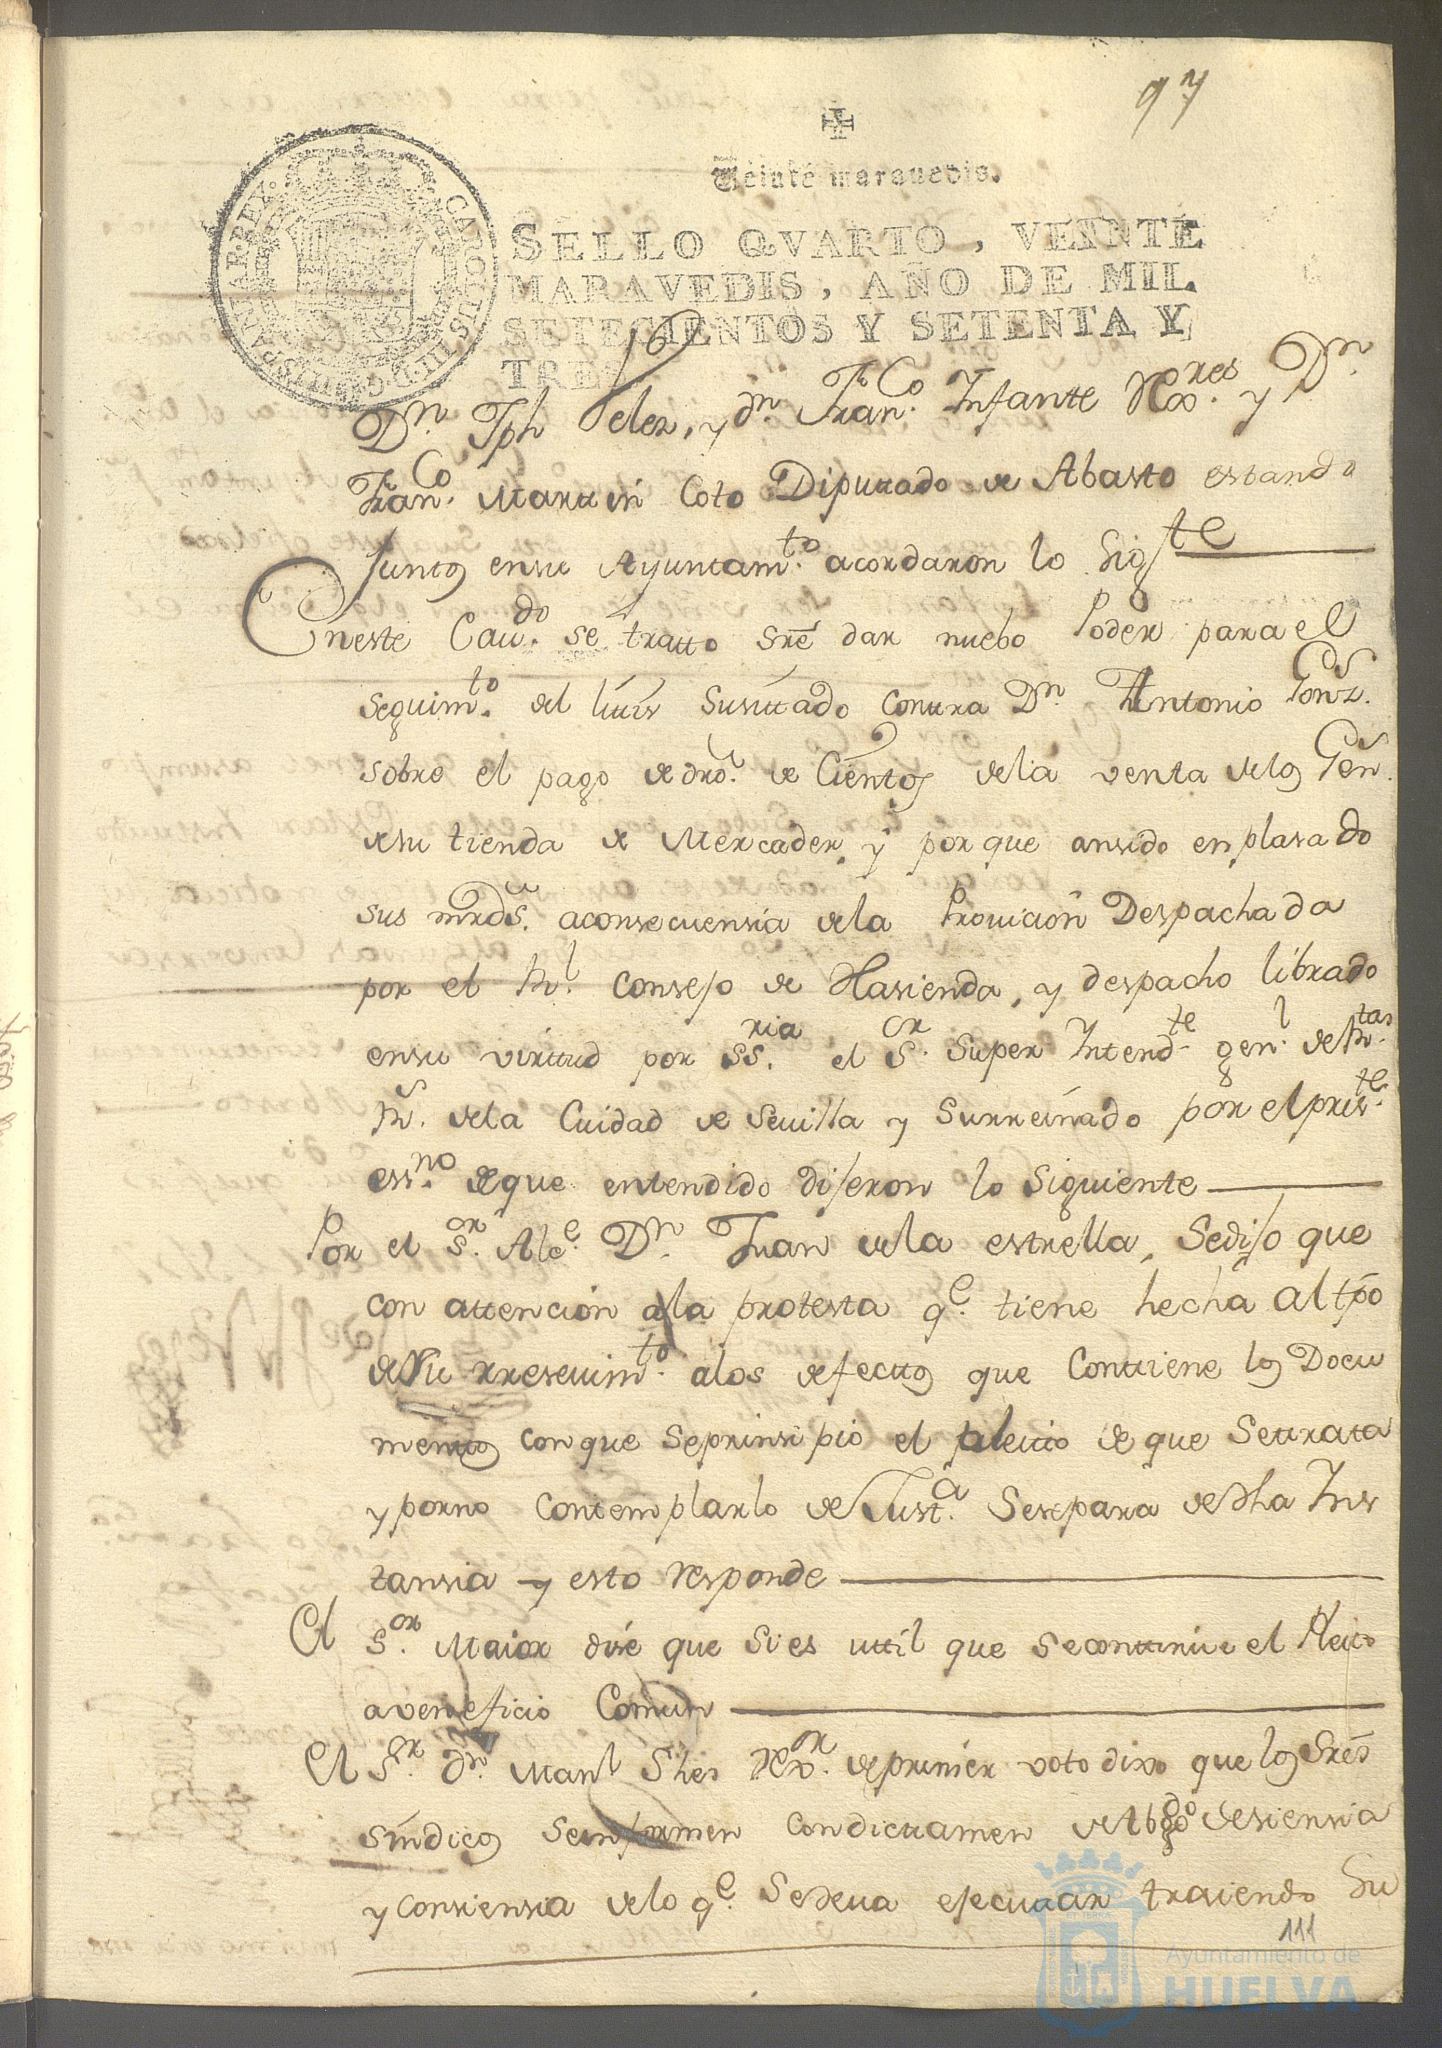 97
Veinte maravedis.
SELLO QVARTO, VEINTE
MARAVEDIS, AÑO DE MIL
SETECIENTOS Y SETENTA Y
TRES
CAROLUS III D G HISPANIAR REX
Dn. Jph Velez, y dn. Franco. Infante Rexores. y Dn
Franco. Martin Coto Diputado de Abasto estando
Juntos ensu Ayuntamto. acordaron lo Sigte
Eneste Caudo. se tratto sre dar nuebo Poder para el
seguimto. del litis Susittado contra Dn Antonio Gonz.
sobre el pago de dro. de Cientos dela venta delos Gen.
desu tienda de Mercader, y porque ansido enplasado
sus mrds. aconsecuensia dela Provicion Despachada
por el Rl. Consejo de Hasienda, y despacho librado
ensu virttud por SSria. el Sor. Super Intendte. genl. de Rtas.
Rs. dela Cuidad de Sevilla y Surreinado por el priste.
esno. de que entendido dijeron lo Siguiente
Por el Sor. Alce. Dn. Juan dela estrella, Sedijo que
con attencion ala protesta qe. tiene hecha al tpo
desu rresevimto. alos defectos que Conttiene los Docu
mentos conque seprinsipio el pleitto de que Settrata
y porno contemplarlo de Justa. Sesepara de dha Ins
tansia y esto responde
El Sor. Maior dise que si es uttil que secontinue el Pleito
aveneficio Comun
El Sor. dn. Manl Shes Rexor. deprimer voto dixo que los Sres
sindicos seinformen condictamen de Abgdo desiensia
y consiensia delo qe. Sedeva efecuttar trasiendo Su
111
Ayuntamiento de
HUELVA